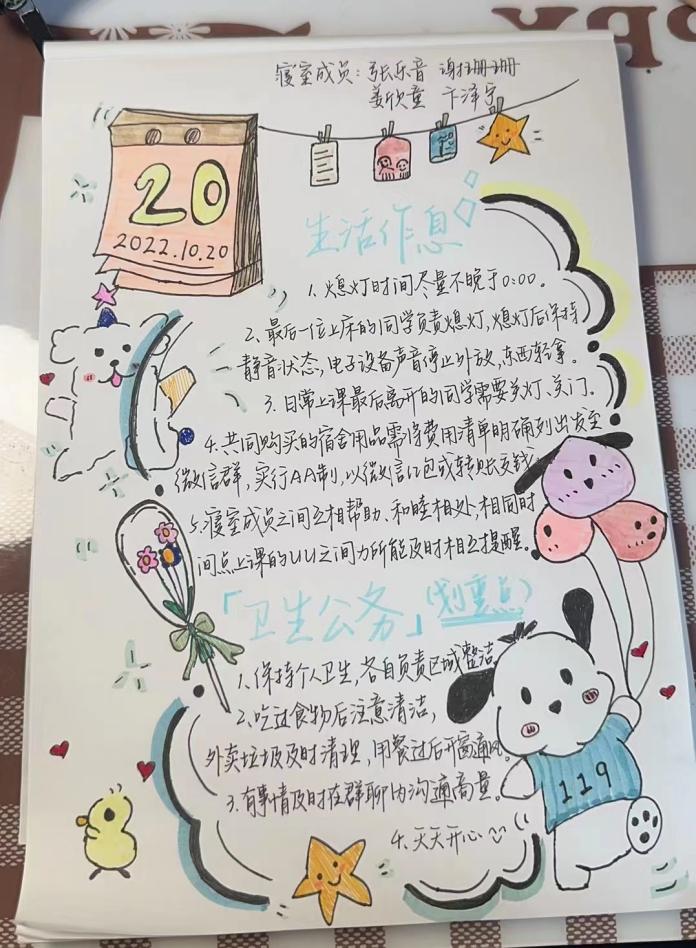 寝室成员：张乐音 谢珊珊
姜欣童 卞泽宇
20
2022.10.20
生活作息
1. 熄灯时间尽量不晚于0:00。
2. 最后一位上床的同学负责熄灯，熄灯后保持
静音状态，电子设备声音停止外放，东西轻拿。
3. 日常上课最后离开的同学需要关灯、关门。
4. 共同购买的宿舍用品需将费用清单明确列出发至
微信群，实行AA制，以微信红包或转账支钱
5. 寝室成员之间互相帮助、和睦相处，相同时
间点上课的UU之间力所能及时相互提醒。
「卫生公务」(划重点)
1. 保持个人卫生，各自负责区域整洁
2. 吃过食物后注意清洁，
外卖垃圾及时清理，用餐过后开窗通风。
3. 有事情及时在群聊内沟通商量。
4. 天天开心
119